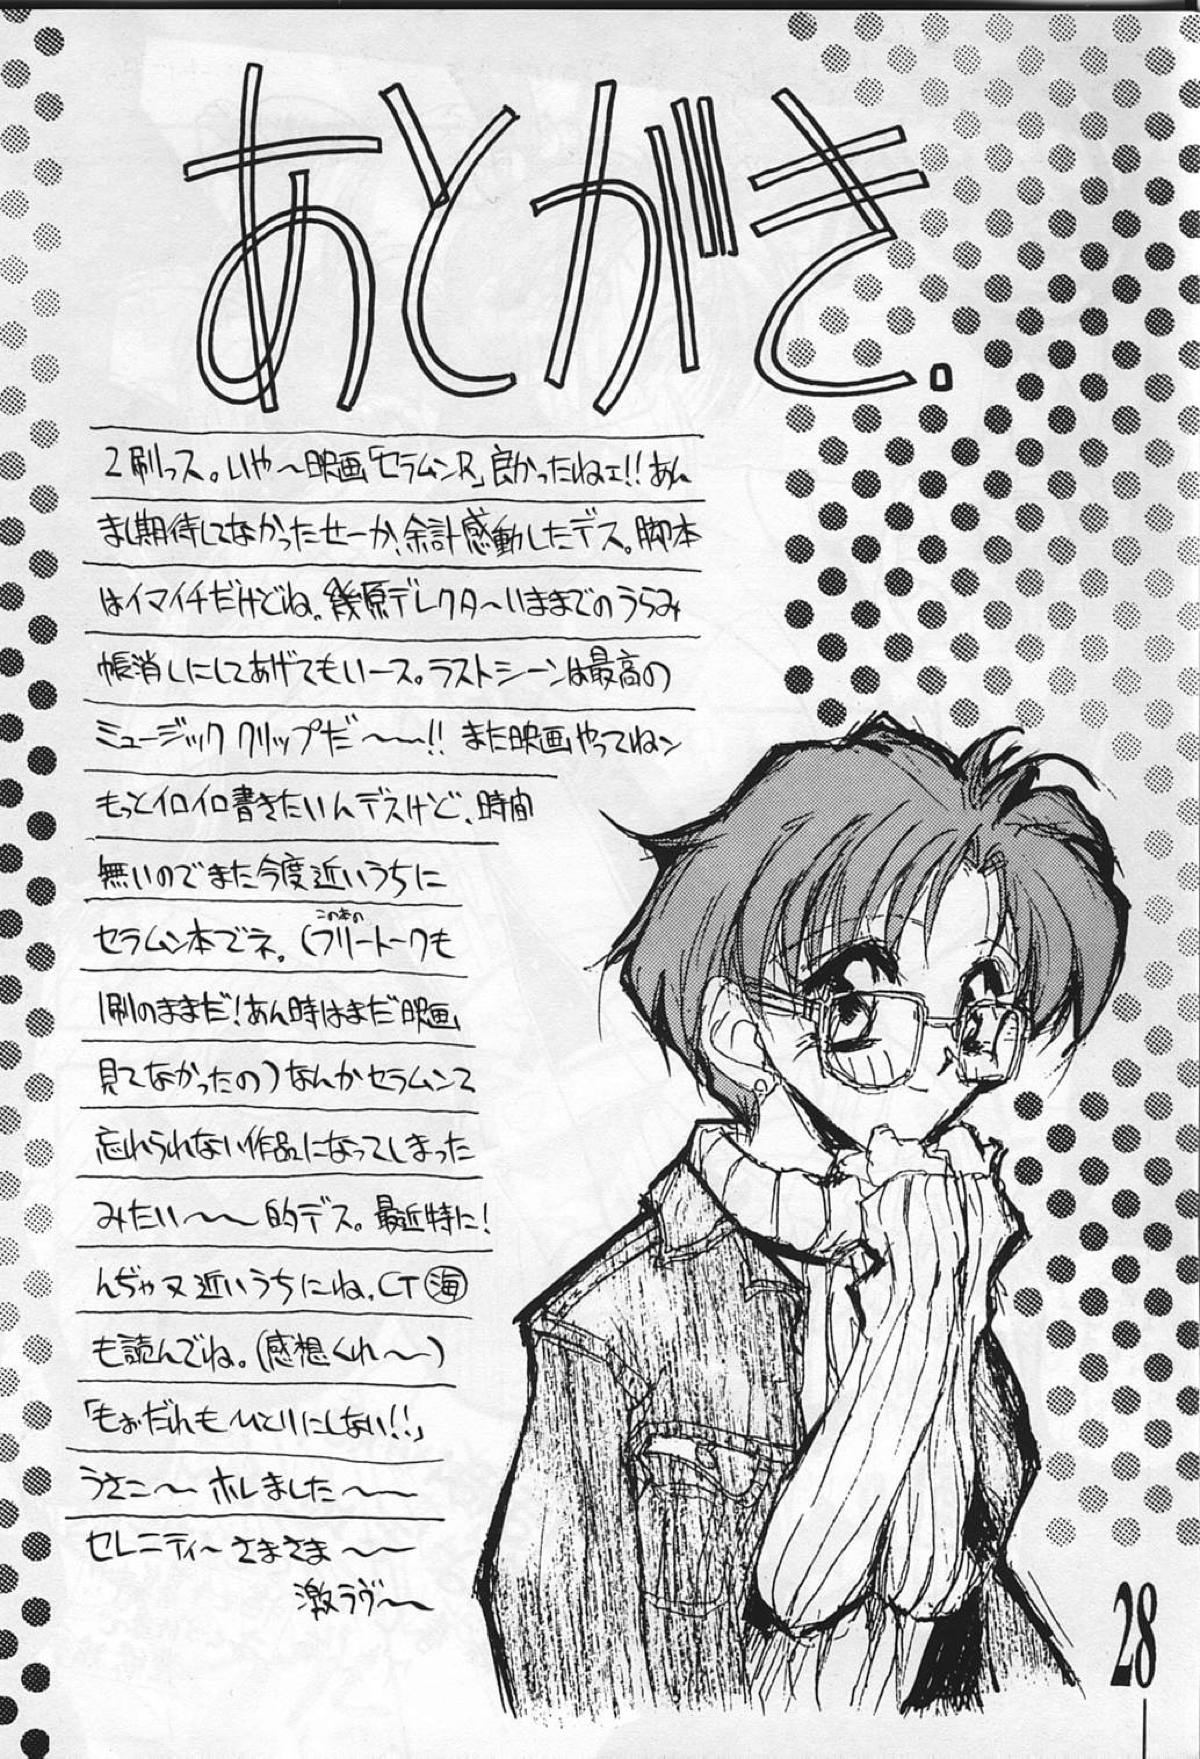 あとがき.
2刷っス。いや～映画「セラムンR」良かったねェ!!あん
まし期待してなかったせーか、余計感動したデス。脚本
はイマイチだけどね。幾原デレクタ～いままでのうらみ
帳消しにしてあげてもいース。ラストシーンは最高の
ミュージッククリップだ～～!! また映画やってねン
もっとイロイロ書きたいんデスけど、時間
無いのでまた今度近いうちに
この本の
セラムン本でネ。(フリートークも
1刷のままだ!あん時はまだ映画
見てなかったの)なんかセラムンて
忘れられない作品になってしまった
みたい～～的デス。最近特に!
んぢゃヌ近いうちにね。CT㊥
も読んでね。(感想くれ～～)
「もぉだれもひとりにしない!!」
うさこ～ホレました～～
セレニティ～さまさま～～
激ラヴ～～
28